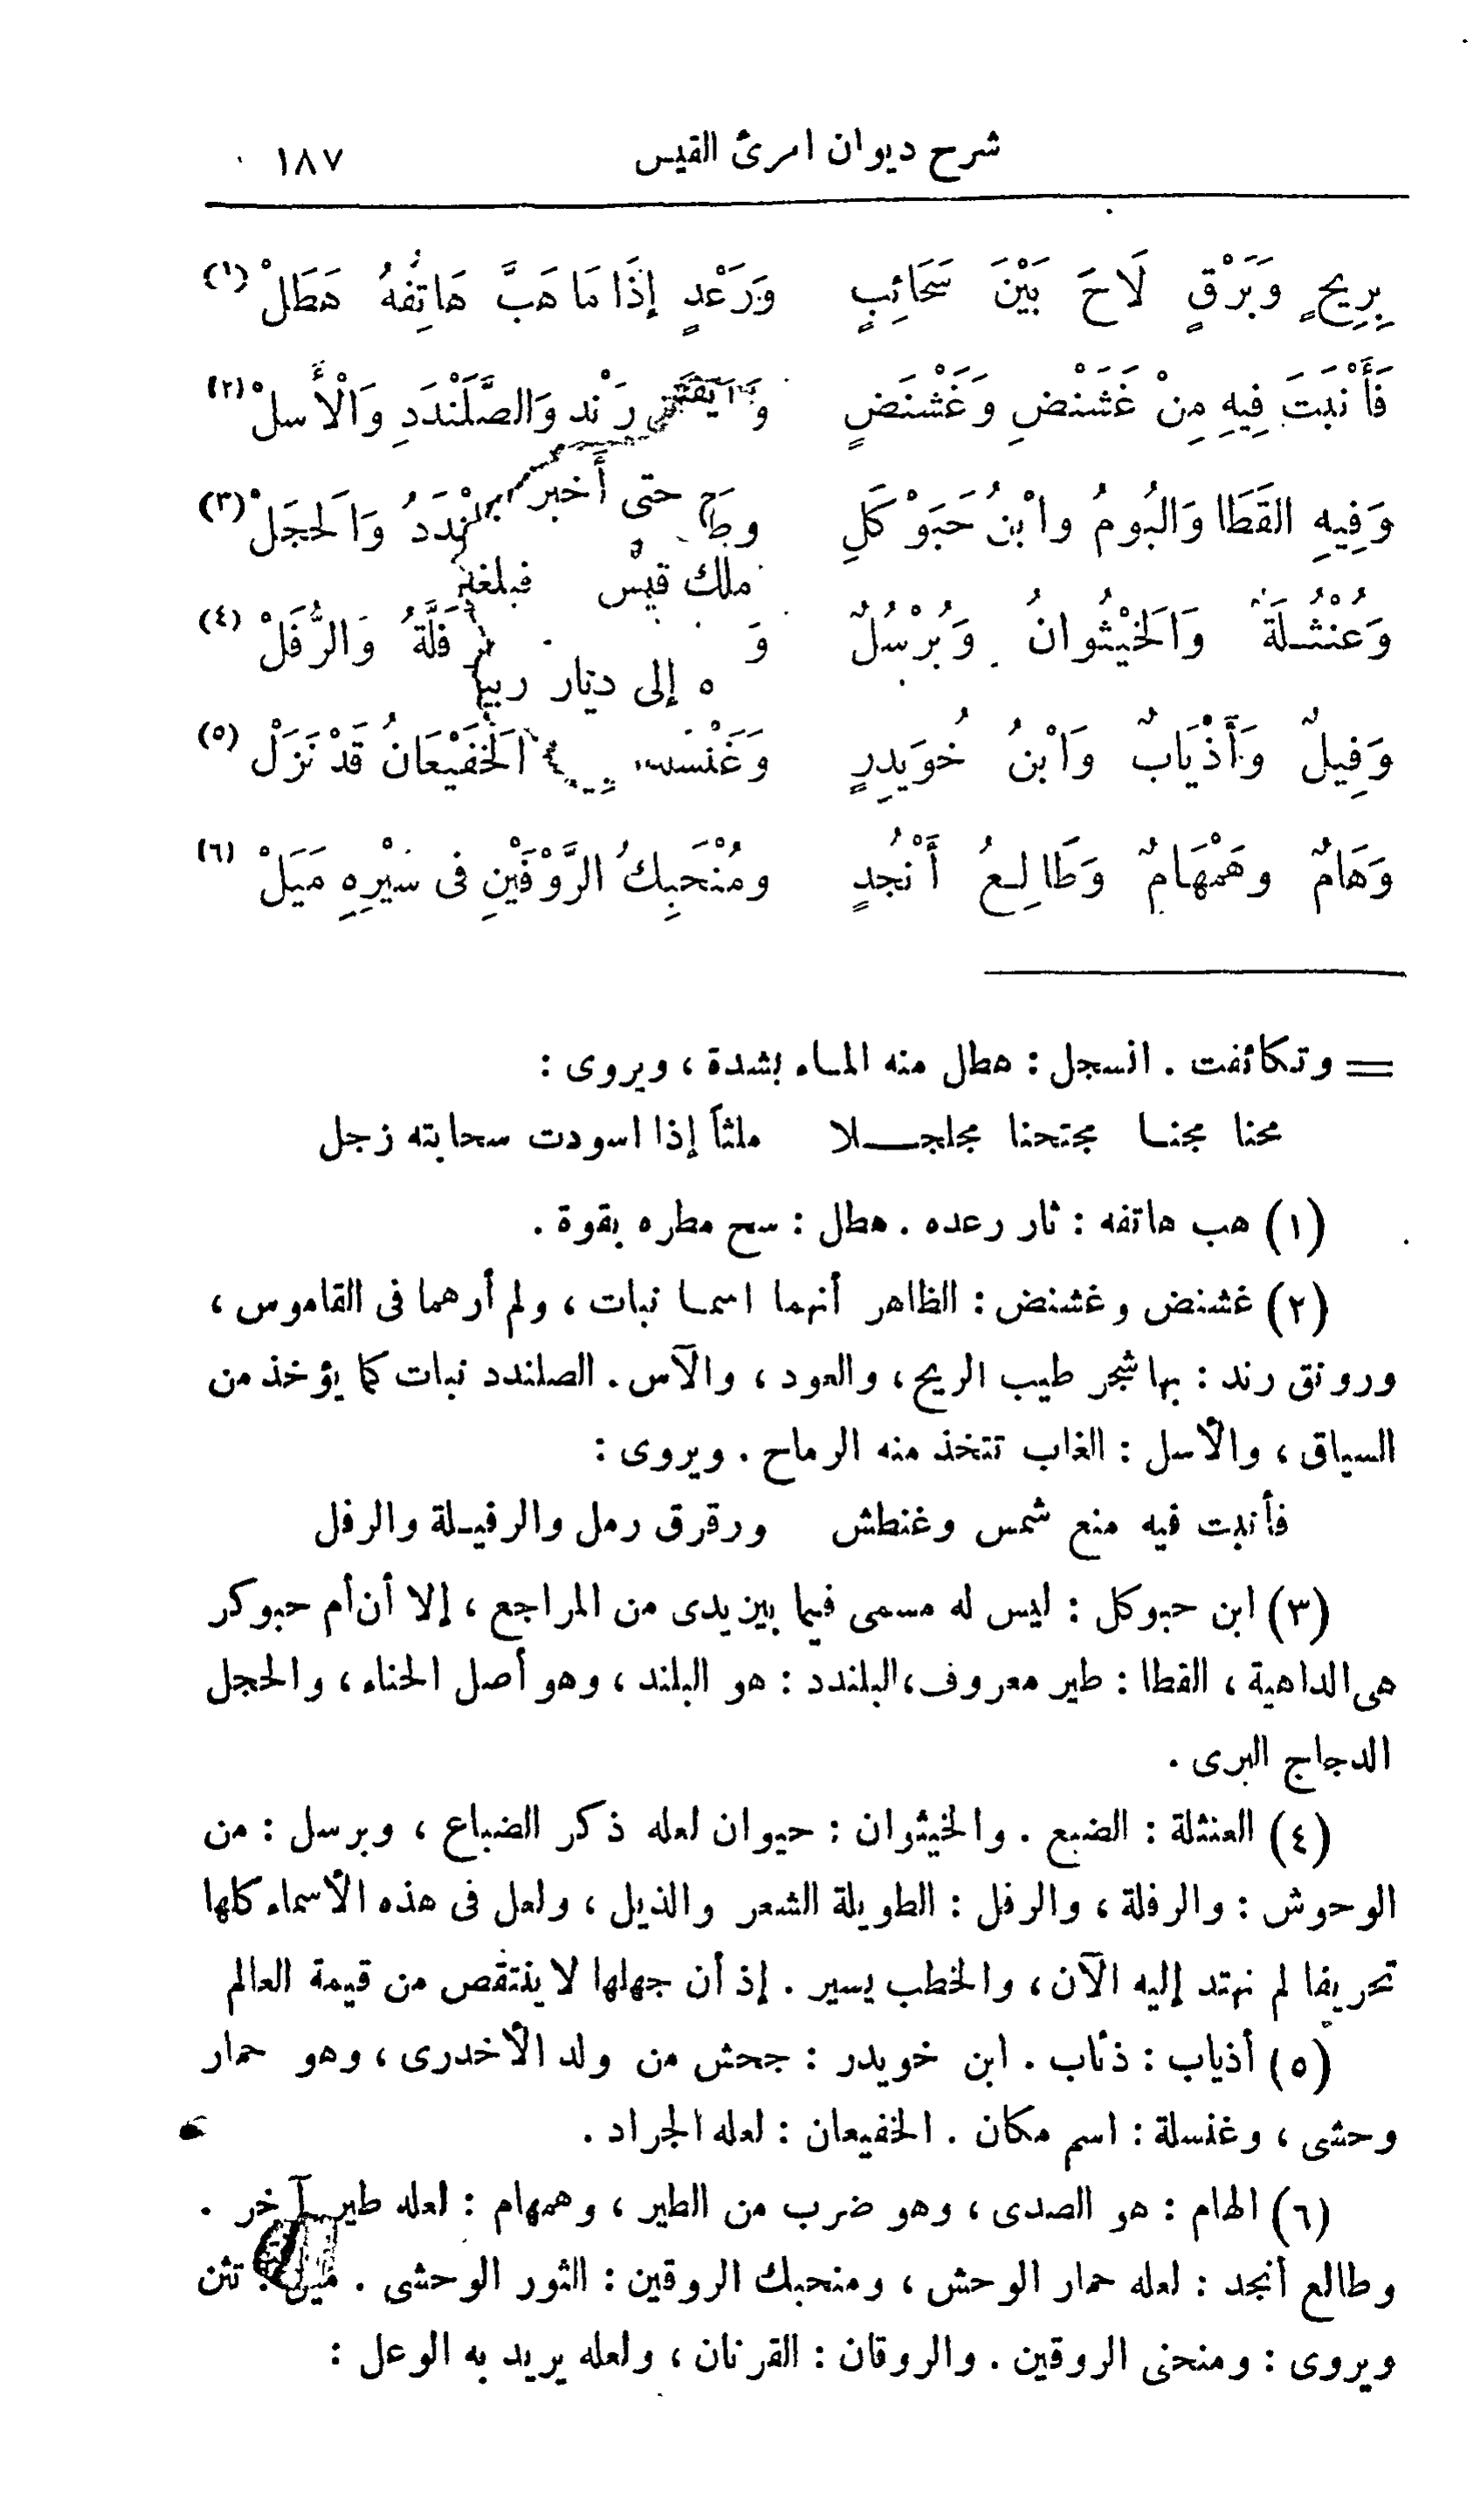 شرح ديوان امرئ القيس ١٨٧
بِرِيحٍ وَبَرْقٍ لَاحَ بَيْنَ سَحَائِبٍ وَرَعْدٍ إِذَا مَا هَبَّ هَاتِفُهُ هَطَلْ (١)
فَأَنْبَتَ فِيهِ مِنْ غَشَنْضِ وَغَشْنَضٍ رَنْدِ وَالصَّلَنْدَدِ وَالْأَسلْ (٢)
وَفِيهِ القَطَا وَالبُومُ وابْنُ حَبَوْكَلِ وَالحَجَلْ (٣)
حتى أخبر
ملك قيس فبلغه
وَعُنْثُلَةٌ وَالخَيْثُوانُ وَبُرْسُلٌ فَلَّةُ وَالرُّفَلْ (٤)
إلى دينار
وَفِيلٌ وَأَذْيَابٌ وَابْنُ خُوَيدِرٍ الخَفَيْعَانُ قَدْ نَزَلْ (٥)
وَهَامٌ وهَمْهَامٌ وَطَالِعُ أَنْجُدٍ ومُنْحَبِكُ الرَّوْقَيْنِ فى سَيْرِهِ مَيَلْ (٦)
= وتكاثفت . انسجل : هطل منه الماء بشدة ، ويروى :
محنا مجنا مجتحنا مجلجلا ملثاً إذا اسودت سحابته زجل
(١) هب هاتفه : ثار رعده . هطل : سح مطره بقوة .
(٢) غشنض وغشنض : الظاهر أنهما اسما نبات ، ولم أرهما فى القاموس ،
ورونق رند : بها شجر طيب الريح ، والعود ، والآس . الصلندد نبات كما يؤخذ من
السياق ، والأسل : الغاب تتخذ منه الرماح . ويروى :
فأنبت فيه منع شمس وغنطش ورقرق رمل والرفيلة والرفل
(٣) ابن حبوكل : ليس له مسمى فيما بين يدى من المراجع ، إلا أن أم حبوكر
هى الداهية ، القطا : طير معروف ، البلندد : هو البلند ، وهو أصل الحناء ، والحجل
الدجاج البرى .
(٤) العنثلة : الضبع . والخيثوان : حيوان لعله ذكر الضباع ، وبرسل : من
الوحوش : والرفلة ، والرفل : الطويلة الشعر والذيل ، ولعل فى هذه الأسماء كلها
تحريفا لم نهتد إليه الآن ، والخطب يسير . إذ أن جهلها لا ينتقص من قيمة العالم
(٥) أذياب : ذئاب . ابن خويدر : جحش من ولد الأخدرى ، وهو حمار
وحشى ، وغنسلة : اسم مكان . الخفيعان : لعله الجراد .
(٦) الهام : هو الصدى ، وهو ضرب من الطير ، وهمهام : لعله طير آخر .
وطالع أنجد : لعله حمار الوحش ، ومنحبك الروقين : الثور الوحشى . ميل : تثن
ويروى : ومنحنى الروقين . والروقان : القرنان ، ولعله يريد به الوعل :